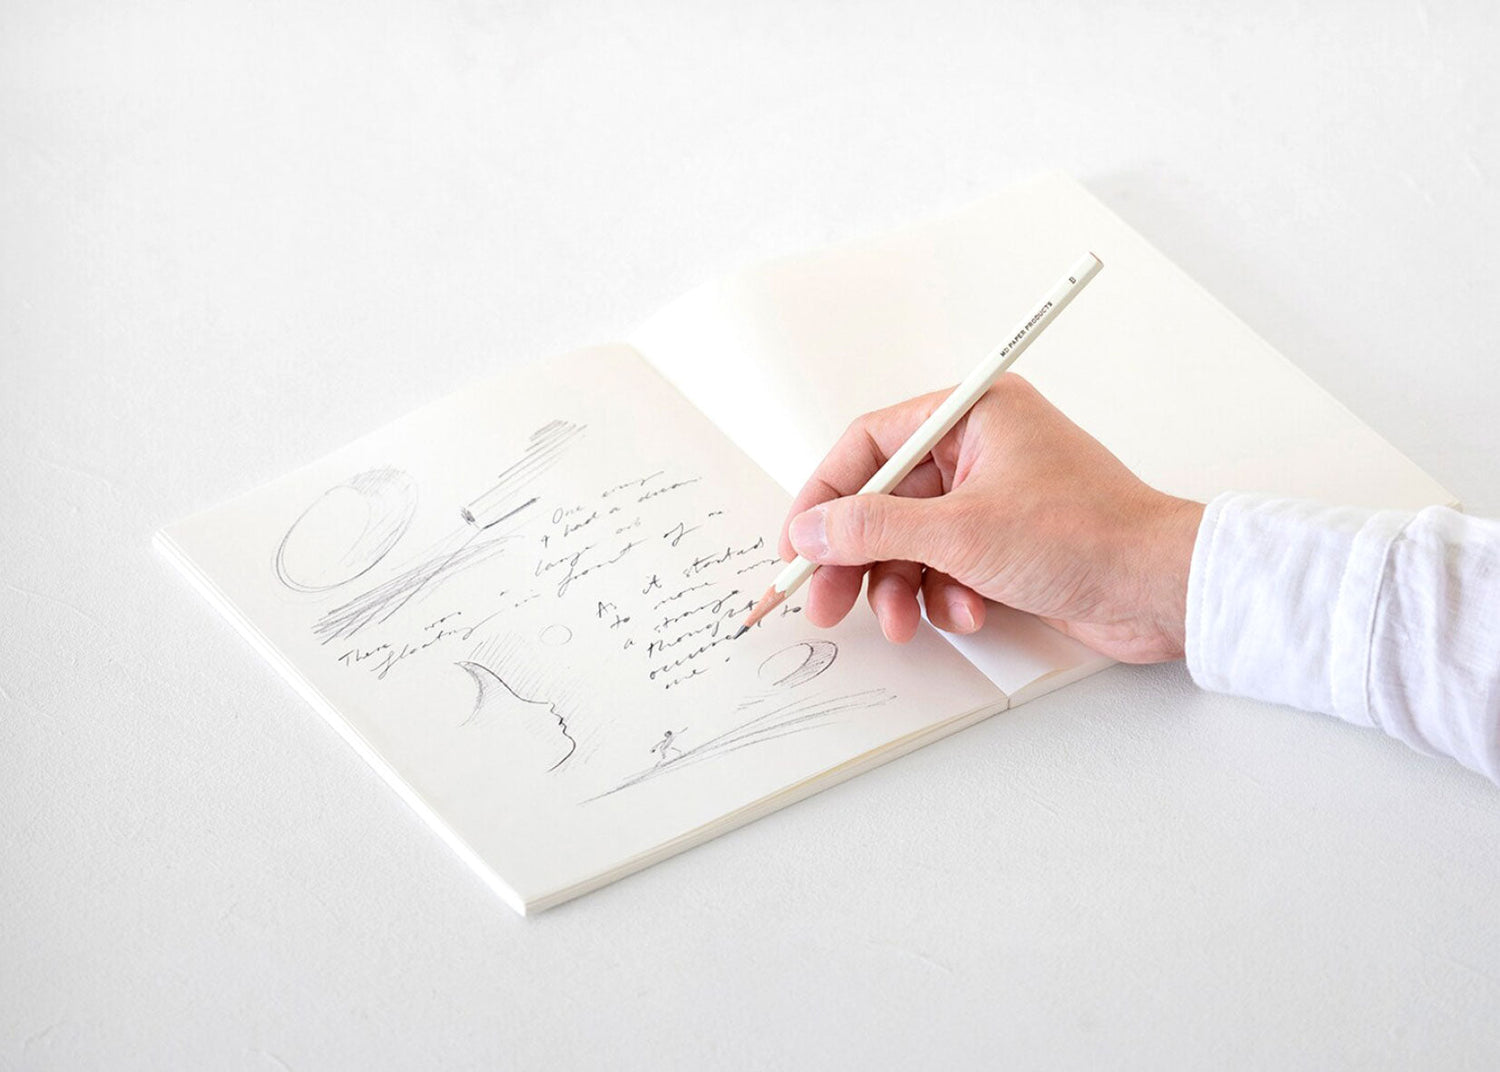 One
I had a dream.
There was a large orb
floating in front of me.
As it started
to move
a strange
thought
occurred to
me.
MD PAPER PRODUCTS B